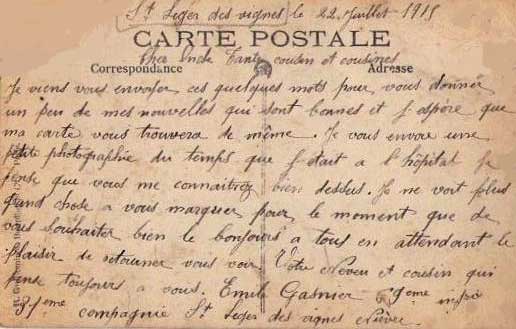 St Leger des vignes le 22 Juillet 1915
CARTE POSTALE
Cher Oncle Tante cousin et cousines
Correspondance Adresse
Je viens vous envoyer ces quelques mots pour vous donner
un peu de mes nouvelles qui sont bonnes et j espère que
ma carte vous trouvera de même. Je vous envoie une
petite photographie du temps que j etait a l'hôpital je
pense que vous me connaitrez bien dessus. Je ne voit plus
grand chose a vous marquer pour le moment que de
vous souhaiter bien le bonjours a tous en attendant le
plaisir de retourner vous voir Votre Neveu et cousin qui
pense toujours a vous. Emile Gasnier 9eme
37eme compagnie St Leger des vignes Nièvre